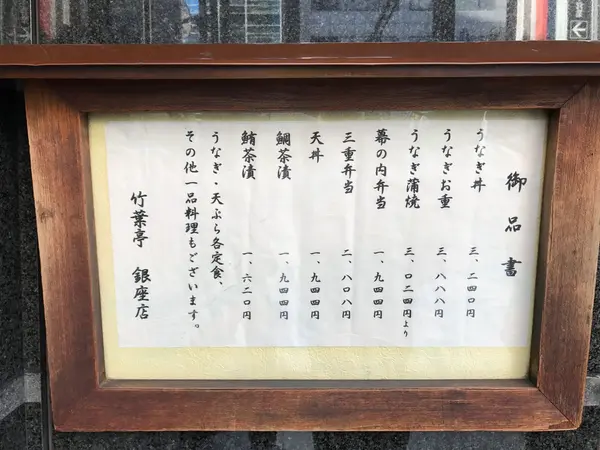 御品書
うなぎ丼 三、二四〇円
うなぎお重 三、八八八円
うなぎ蒲焼 三、〇二四円より
幕の内弁当 一、九四四円
三重弁当 二、八〇八円
天丼 一、九四四円
鯛茶漬 一、九四四円
鮪茶漬 一、六二〇円
うなぎ・天ぷら各定食、
その他一品料理もございます。
竹葉亭 銀座店